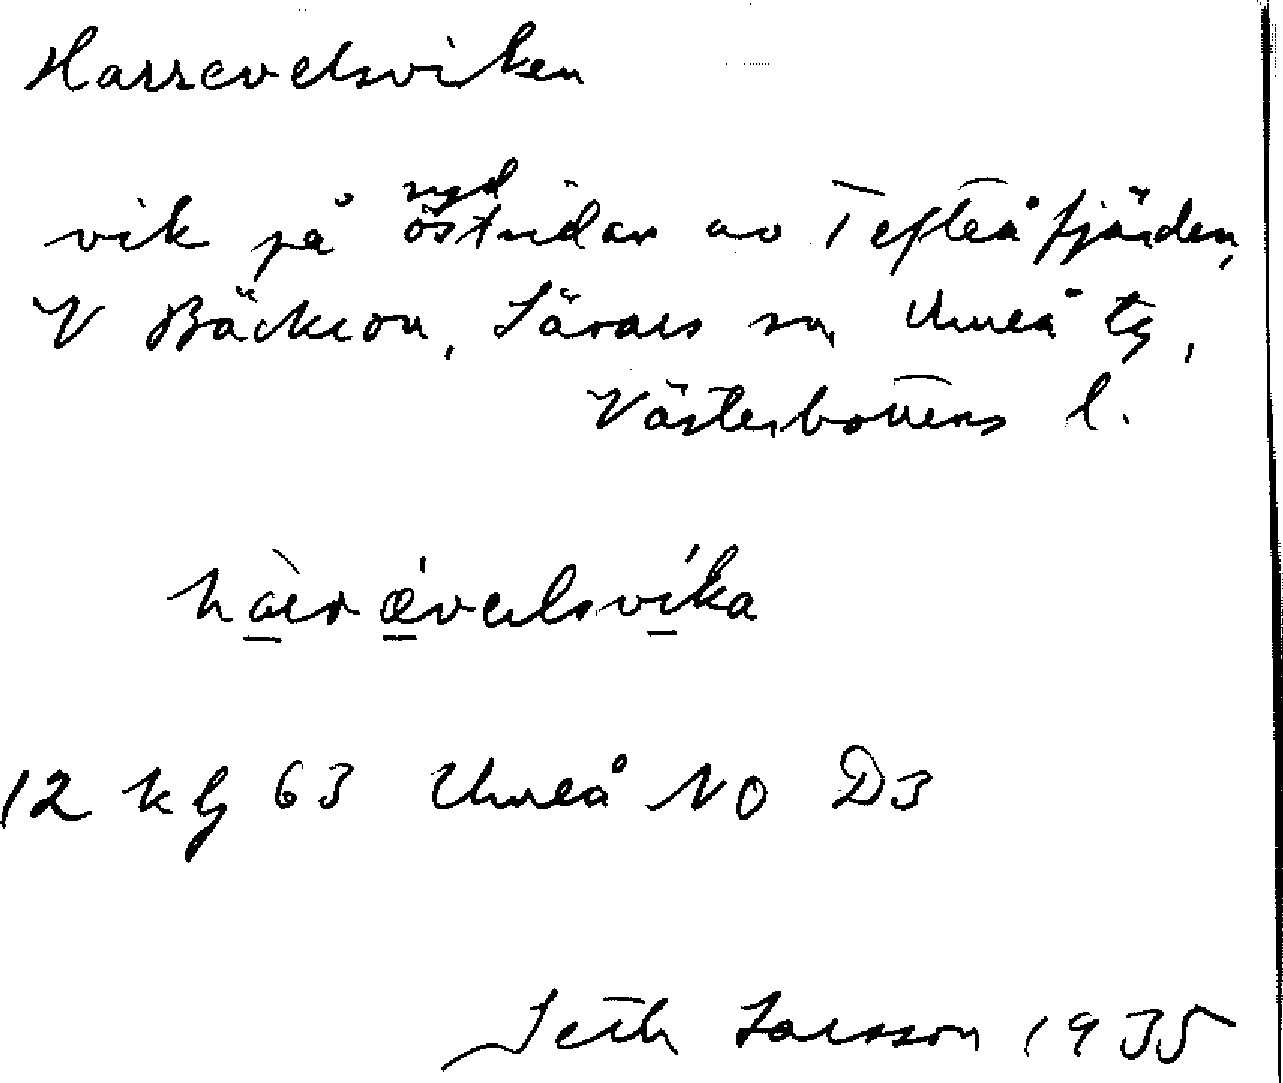 Harrevelsviken
vik på sydöstsidan av Tefteåfjärden,
V Bäckron, Sävars sn, Umeå tg,
Västerbottens l.
hàrǿvelsvíka
12 k bj 63 Umeå NO D3
Seth Larsson 1935